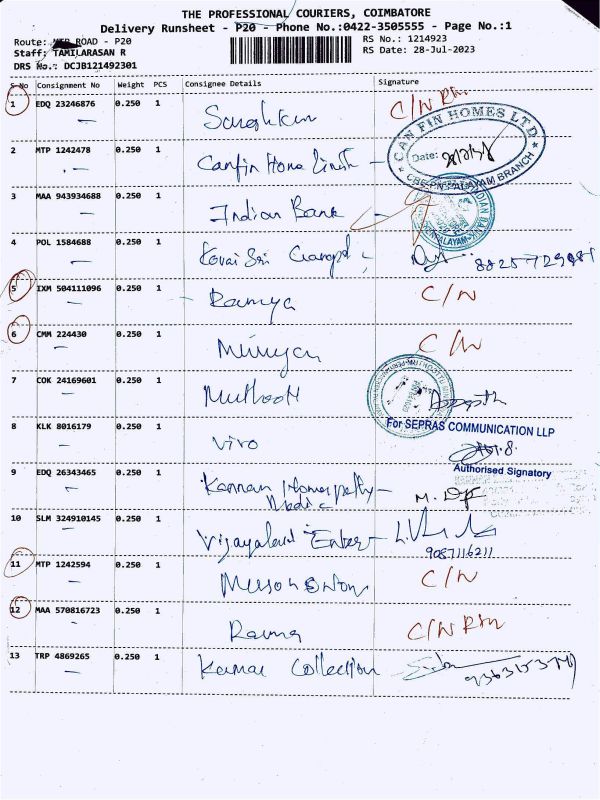 THE PROFESSIONAL COURIERS, COIMBATORE
Delivery Runsheet - P20 - Phone No.:0422-3505555 - Page No.:1
Route: ROAD - P20
RS No.: 1214923
Staff: TAMILARASAN R
RS Date: 28-Jul-2023
DRS No.: DCJB121492301
S No Consignment No Weight PCS Consignee Details Signature
1 EDQ 23246876 0.250 1 C/N Rtn
CAN FIN HOMES LTD
Date:
2 MTP 1242478 0.250 1 Canfin Home
PALAYAM BRANCH
3 MAA 943934688 0.250 1 Indian Bank
4 POL 1584688 0.250 1 Kovai Sri
5 IXM 504111096 0.250 1 Ramya C/N
6 CMM 224430 0.250 1 Murugan C/N
7 COK 24169601 0.250 1 Muthoot
For SEPRAS COMMUNICATION LLP
8 KLK 8016179 0.250 1 Vivo
Authorised Signatory
9 EDQ 26343465 0.250 1 Kannan Homeopathy
Medic
10 SLM 324910145 0.250 1
9087116211
11 MTP 1242594 0.250 1 C/N
12 MAA 570816723 0.250 1 Rama C/N Rtn
13 TRP 4869265 0.250 1 Kumar Collection